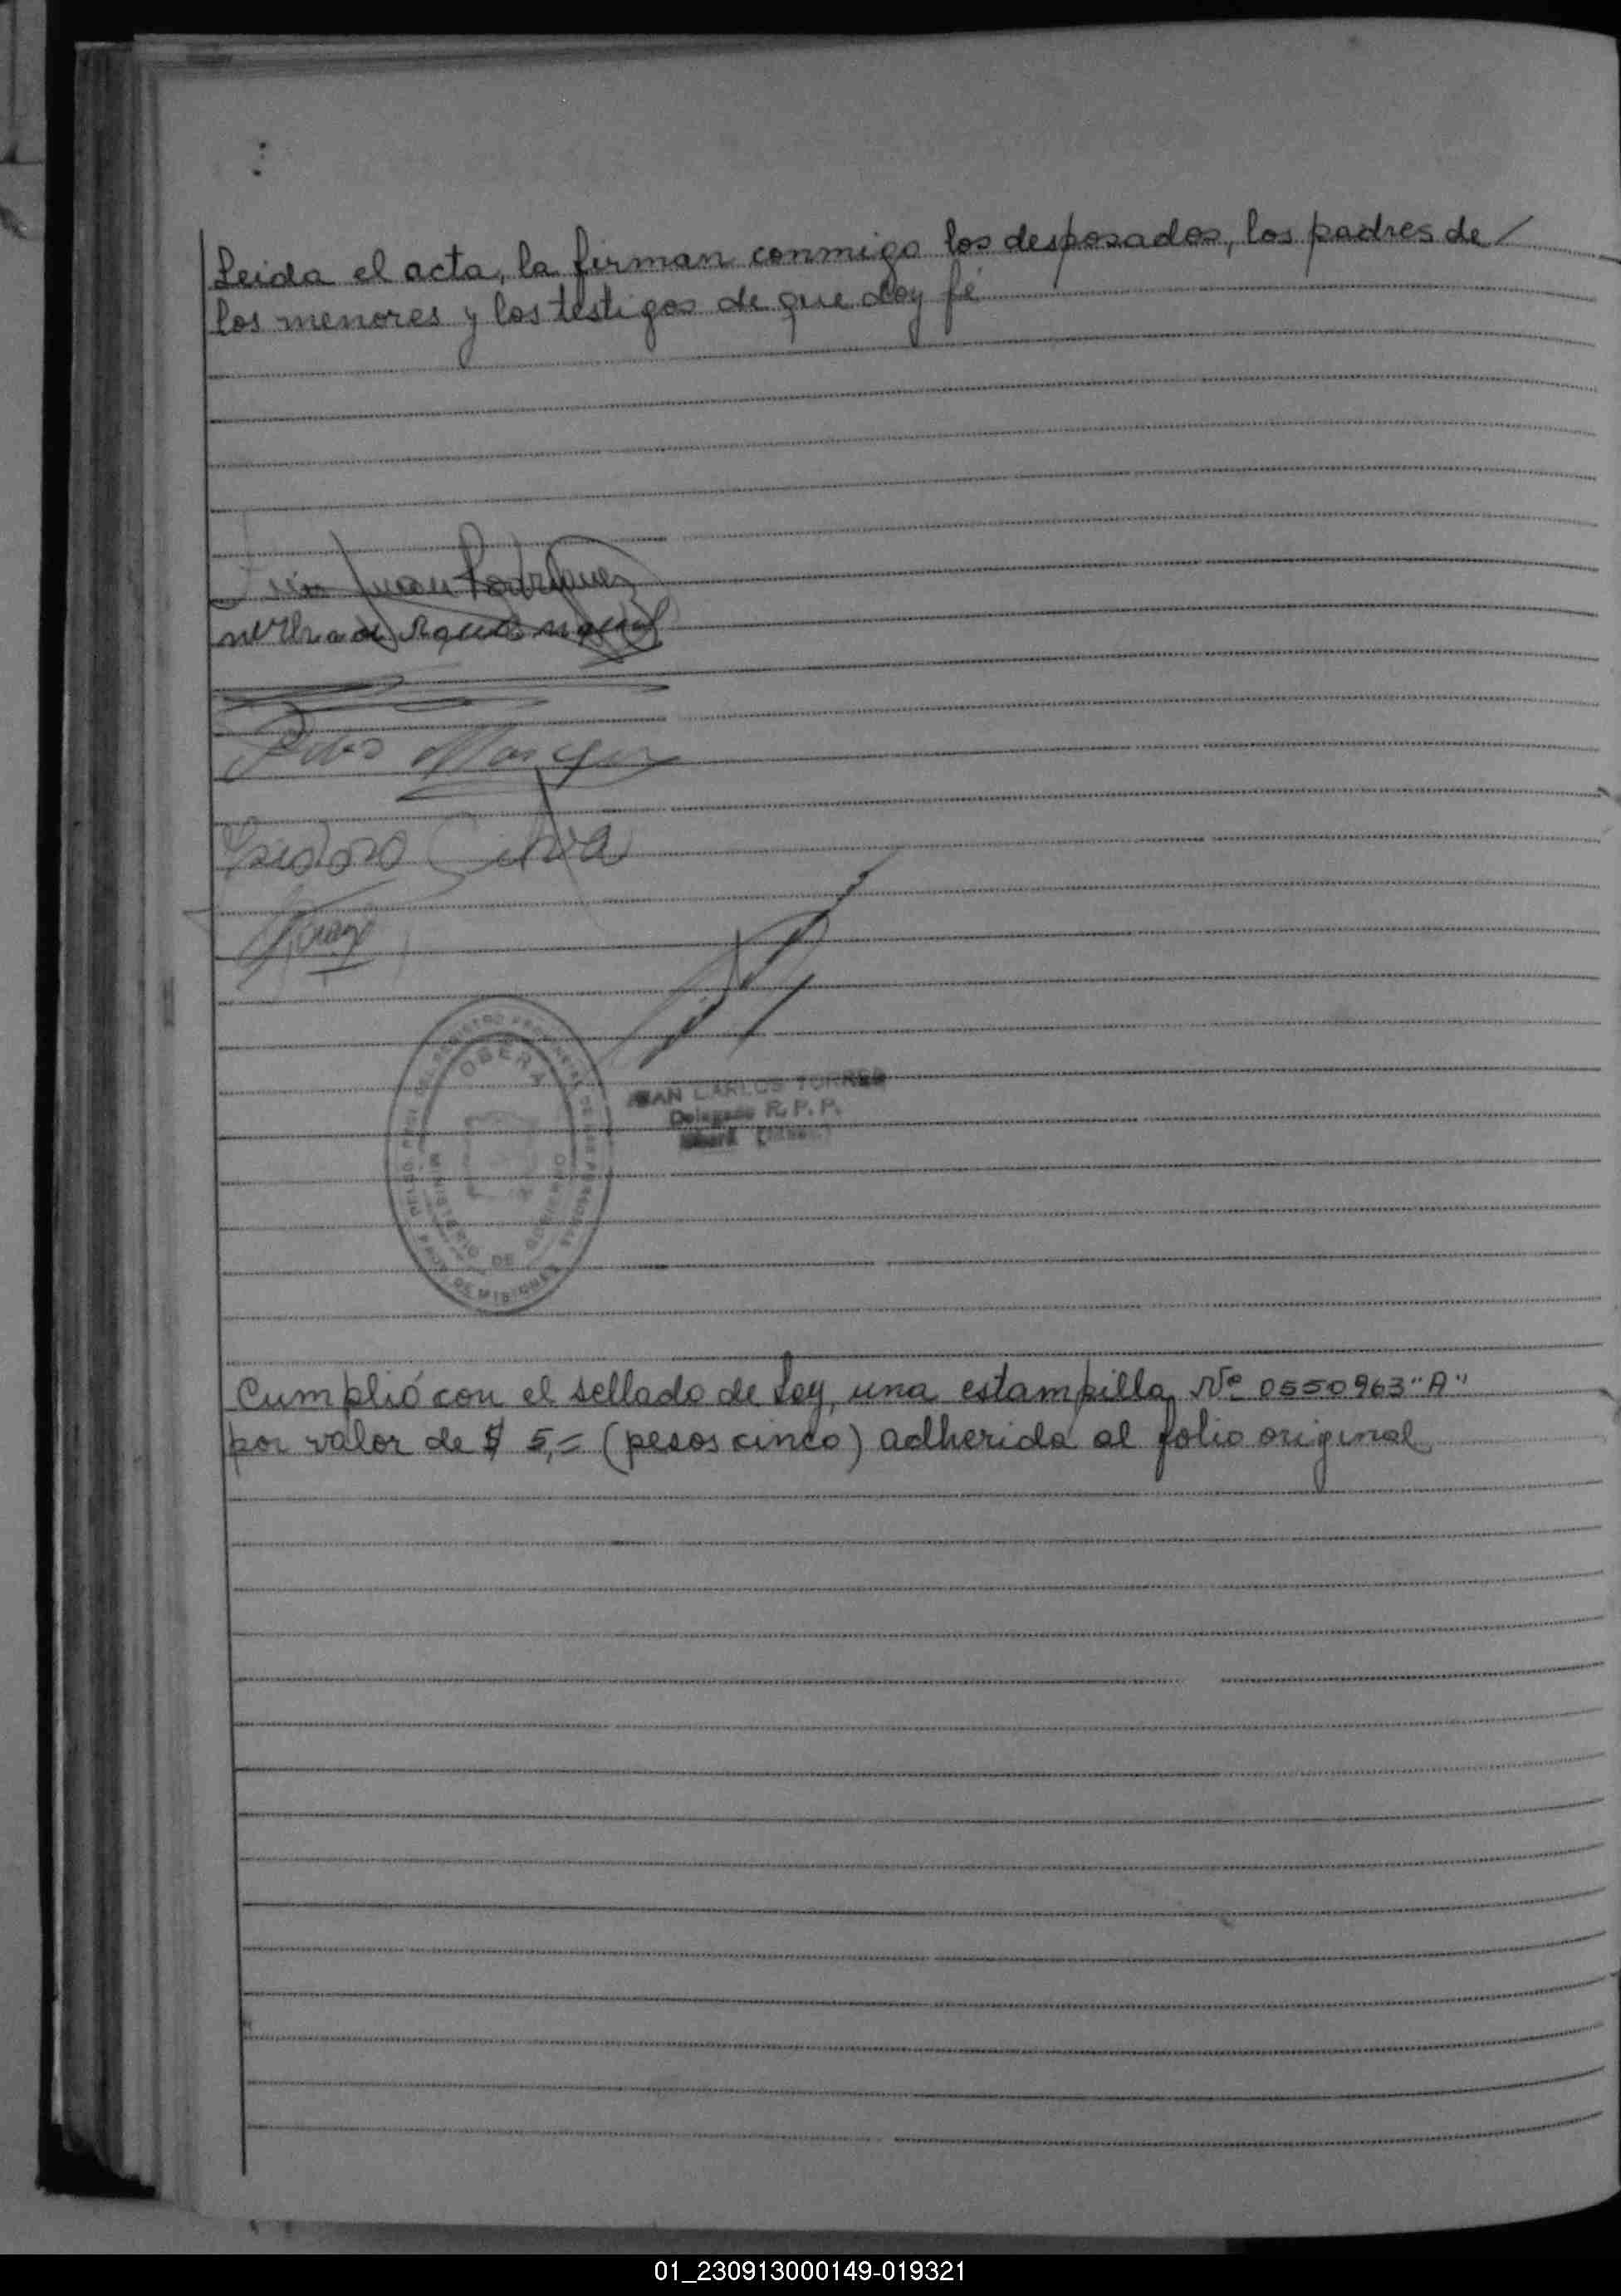 Leida el acta, la firman conmigo los desposados, los padres de /
los menores y los testigos de que doy fé
Juan Rodriguez
Isidoro Silva
OBERA
MINISTERIO DE GOBIERNO
DE MISIONES
JUAN CARLOS TORRES
Delegado R. P. P.
Cumplió con el sellado de Ley, una estampilla Nº 0550963 "A"
por valor de $ 5,= (pesos cinco) adherida al folio original
01_230913000149-019321